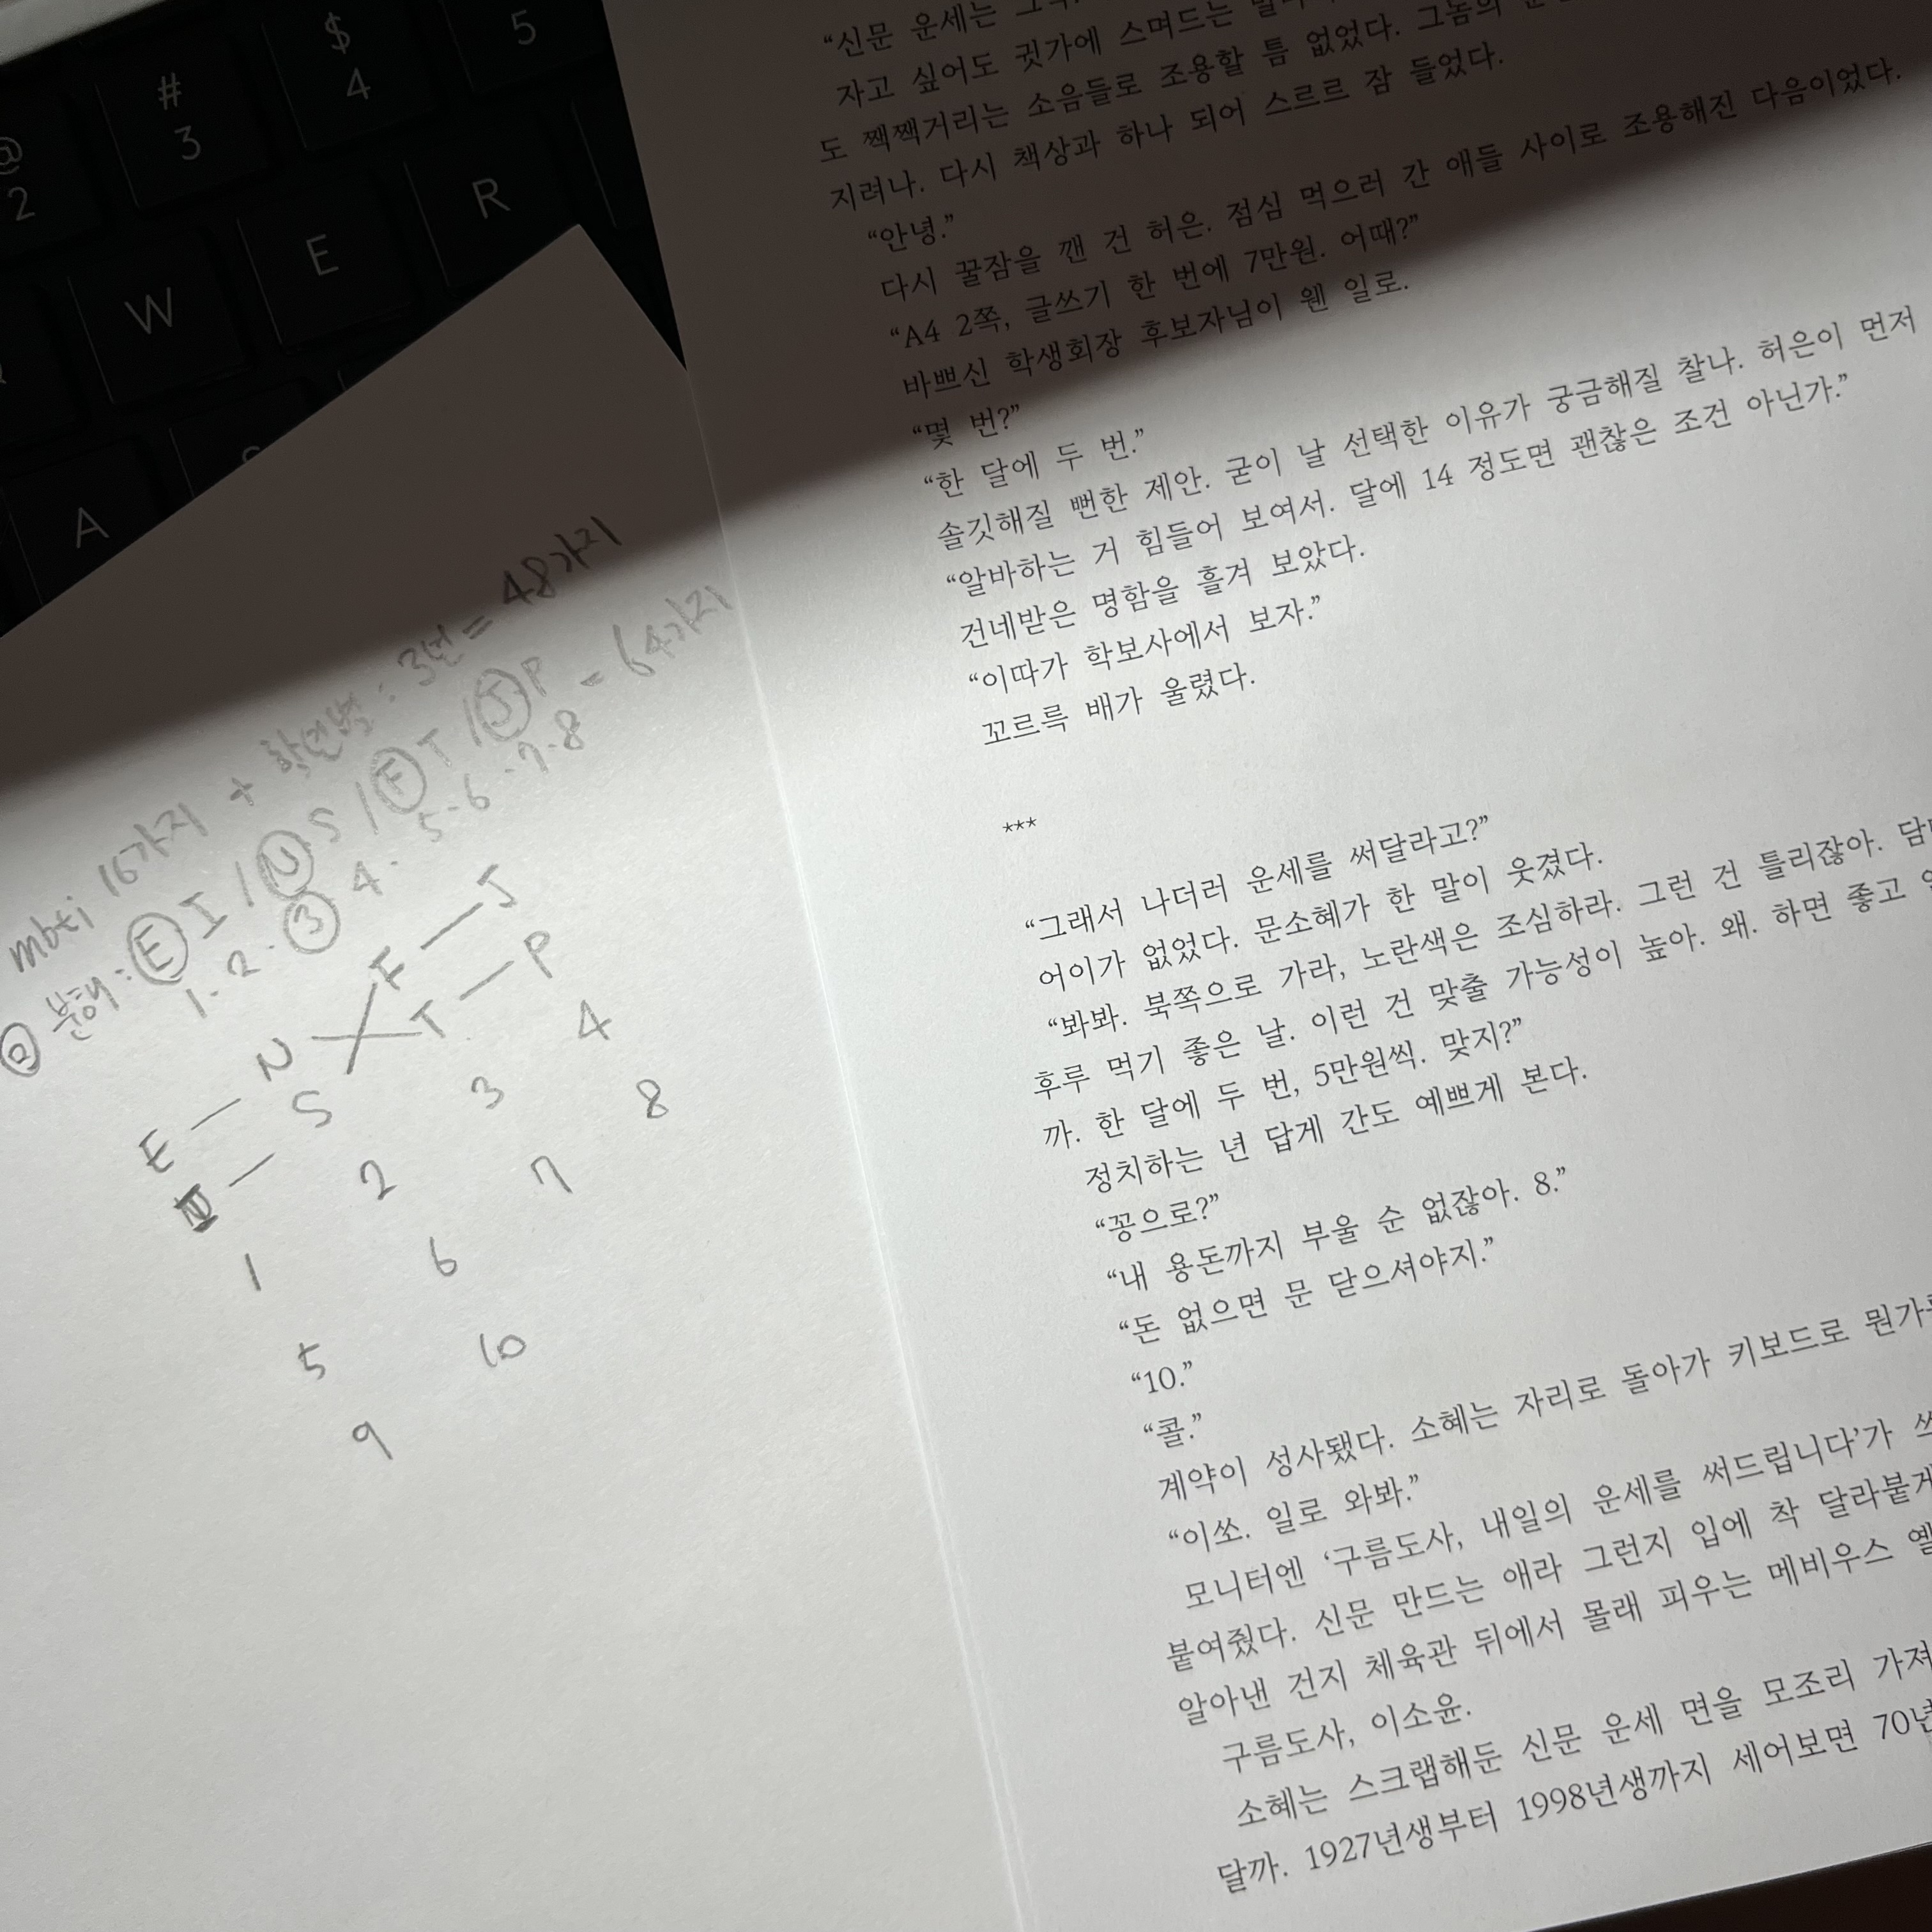 @ # $
2 3 4 5
W E R
A
mbti 16가지 + 학년별 : 3번 = 48가지
분해 : E I / N S / F T / J P - 64가지
1 - 2 - 3 4 - 5 - 6 - 7 - 8
E — N F — J
I — S T — P
1 2 3 4
5 6 7 8
9 10
“신문 운세는
자고 싶어도 귓가에 스며드는
도 짹짹거리는 소음들로 조용할 틈 없었다. 그놈의
지려나. 다시 책상과 하나 되어 스르르 잠 들었다.
“안녕.”
다시 꿀잠을 깬 건 허은. 점심 먹으러 간 애들 사이로 조용해진 다음이었다.
“A4 2쪽, 글쓰기 한 번에 7만원. 어때?”
바쁘신 학생회장 후보자님이 웬 일로.
“몇 번?”
“한 달에 두 번.”
솔깃해질 뻔한 제안. 굳이 날 선택한 이유가 궁금해질 찰나. 허은이 먼저
“알바하는 거 힘들어 보여서. 달에 14 정도면 괜찮은 조건 아닌가.”
건네받은 명함을 흘겨 보았다.
“이따가 학보사에서 보자.”
꼬르륵 배가 울렸다.
***
“그래서 나더러 운세를 써달라고?”
어이가 없었다. 문소혜가 한 말이 웃겼다.
“봐봐. 북쪽으로 가라, 노란색은 조심하라. 그런 건 틀리잖아.
후루 먹기 좋은 날. 이런 건 맞출 가능성이 높아. 왜. 하면 좋고
까. 한 달에 두 번, 5만원씩. 맞지?”
정치하는 년 답게 간도 예쁘게 본다.
“꽁으로?”
“내 용돈까지 부울 순 없잖아. 8.”
“돈 없으면 문 닫으셔야지.”
“10.”
“콜.”
계약이 성사됐다. 소혜는 자리로 돌아가 키보드로 뭔가
“이쏘. 일로 와봐.”
모니터엔 ‘구름도사, 내일의 운세를 써드립니다’가
붙여줬다. 신문 만드는 애라 그런지 입에 착 달라붙게
알아낸 건지 체육관 뒤에서 몰래 피우는 메비우스
구름도사, 이소윤.
소혜는 스크랩해둔 신문 운세 면을 모조리 가져
달까. 1927년생부터 1998년생까지 세어보면 70년